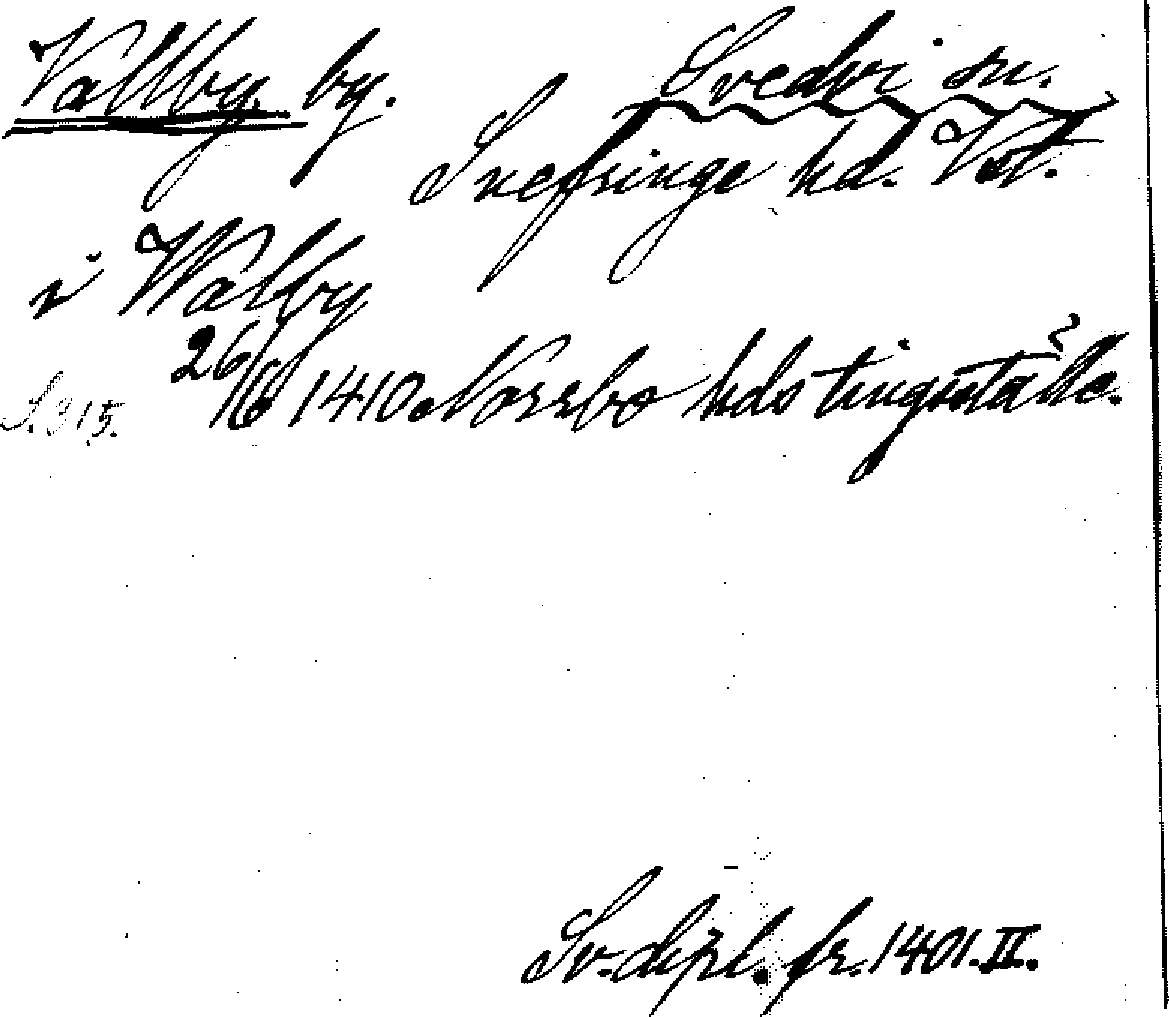 Vallby. by. Svedvi sn.
Snefringe hd. Vst.
i Walby
26/6 1410 Norrbo hds tingställe.
S. 315.
Sv. dipl. fr. 1401. II.